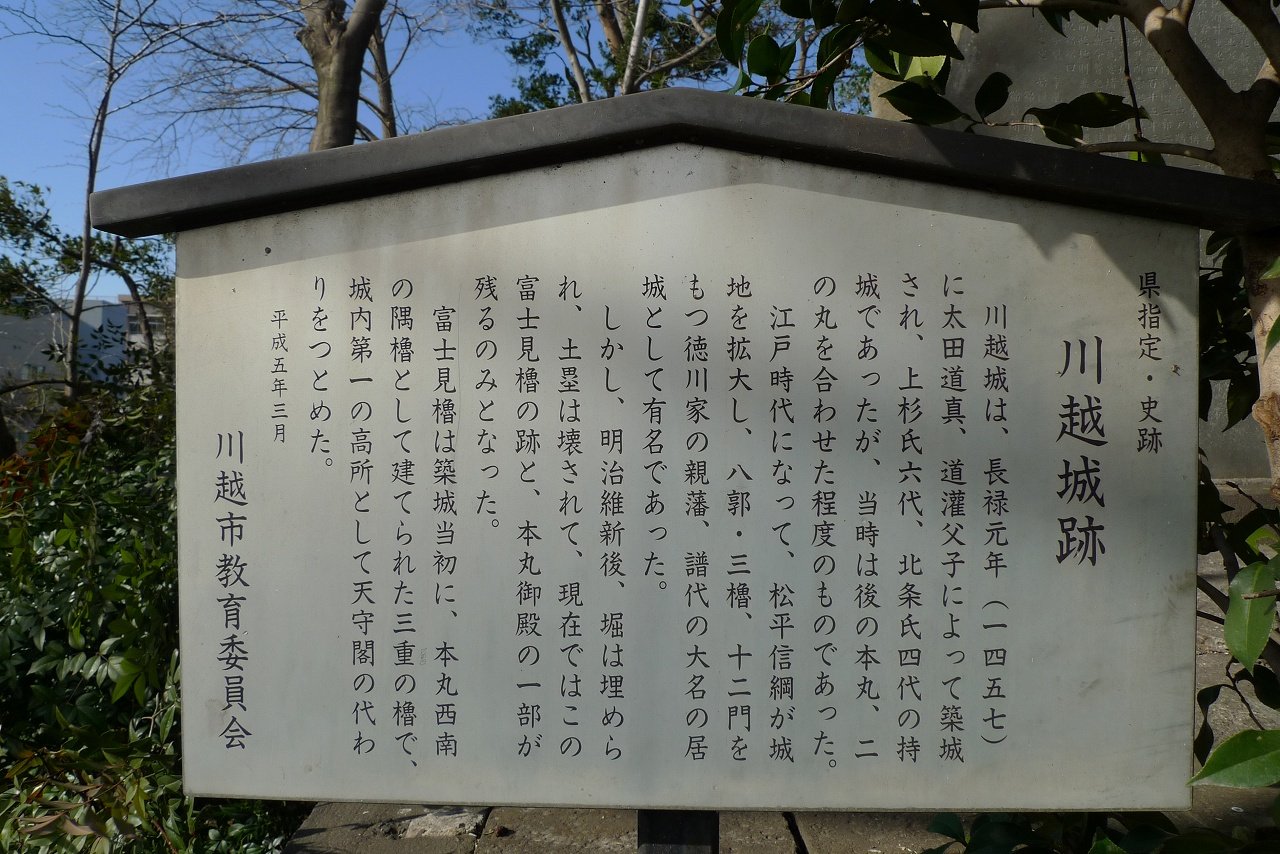 県指定・史跡
川越城跡
川越城は、長禄元年（一四五七）
に太田道真、道灌父子によって築城
され、上杉氏六代、北条氏四代の持
城であったが、当時は後の本丸、二
の丸を合わせた程度のものであった。
江戸時代になって、松平信綱が城
地を拡大し、八郭・三櫓、十二門を
もつ徳川家の親藩、譜代の大名の居
城として有名であった。
しかし、明治維新後、堀は埋めら
れ、土塁は壊されて、現在ではこの
富士見櫓の跡と、本丸御殿の一部が
残るのみとなった。
富士見櫓は築城当初に、本丸西南
の隅櫓として建てられた三重の櫓で、
城内第一の高所として天守閣の代わ
りをつとめた。
平成五年三月
川越市教育委員会